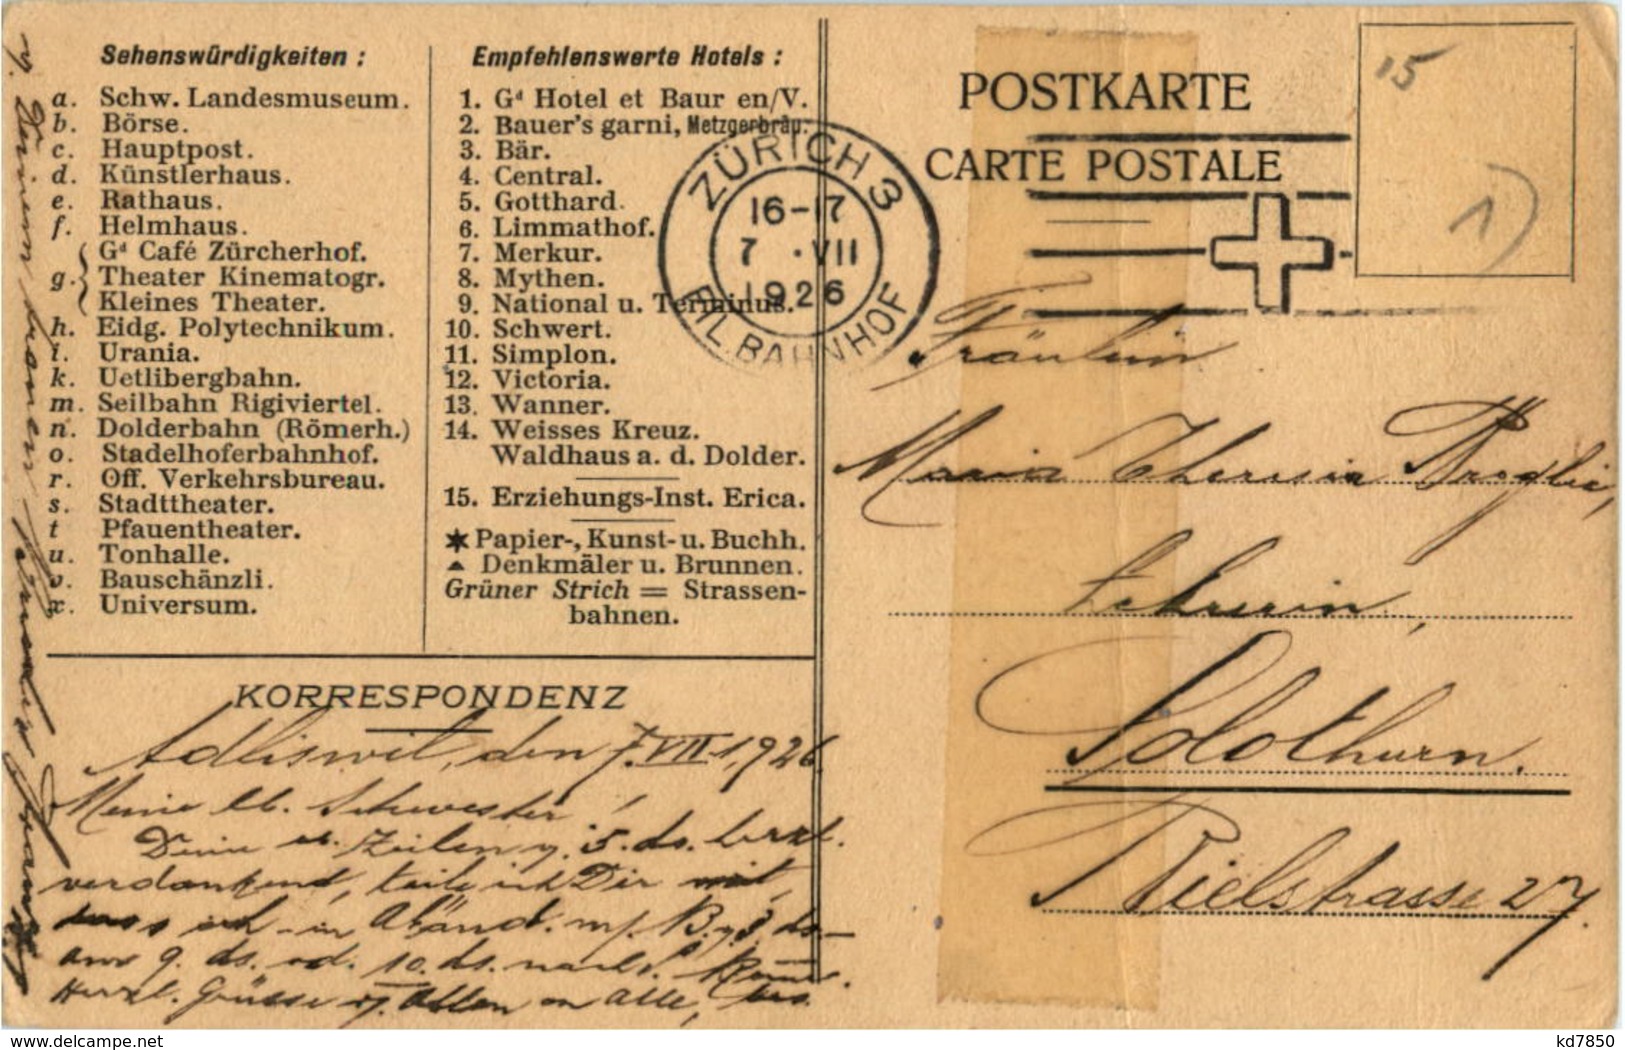 Sehenswürdigkeiten :
a. Schw. Landesmuseum.
b. Börse.
c. Hauptpost.
d. Künstlerhaus.
e. Rathaus.
f. Helmhaus.
Gd Café Zürcherhof.
g. Theater Kinematogr.
Kleines Theater.
h. Eidg. Polytechnikum.
i. Urania.
k. Uetlibergbahn.
m. Seilbahn Rigiviertel.
n. Dolderbahn (Römerh.)
o. Stadelhoferbahnhof.
r. Off. Verkehrsbureau.
s. Stadttheater.
t Pfauentheater.
u. Tonhalle.
v. Bauschänzli.
x. Universum.
Empfehlenswerte Hotels :
1. Gd Hotel et Baur en/V.
2. Bauer's garni, Metzgerbräu.
3. Bär.
4. Central.
5. Gotthard.
6. Limmathof.
7. Merkur.
8. Mythen.
9. National u. Terminus.
10. Schwert.
11. Simplon.
12. Victoria.
13. Wanner.
14. Weisses Kreuz.
Waldhaus a. d. Dolder.
15. Erziehungs-Inst. Erica.
Papier-, Kunst- u. Buchh.
Denkmäler u. Brunnen.
Grüner Strich = Strassen-
bahnen.
KORRESPONDENZ
Adliswil, den 7.VII.1926
Meine lb. Schwester!
Deine Zeilen v. 5. ds. herzl.
verdankend, teile ich Dir mit,
ich in Abänd. m/. 3. ds.
am 9. ds. od. 10. ds. nach
Herzl. Grüsse v. Allen an Alle, bes.
POSTKARTE
CARTE POSTALE
ZÜRICH 3
16-17
7 · VII
1926
FIL. BAHNHOF
15
1)
Fräulein
Maria Theresia
Lehrerin,
Solothurn.
Bielstrasse 27.
www.delcampe.net
kd7850